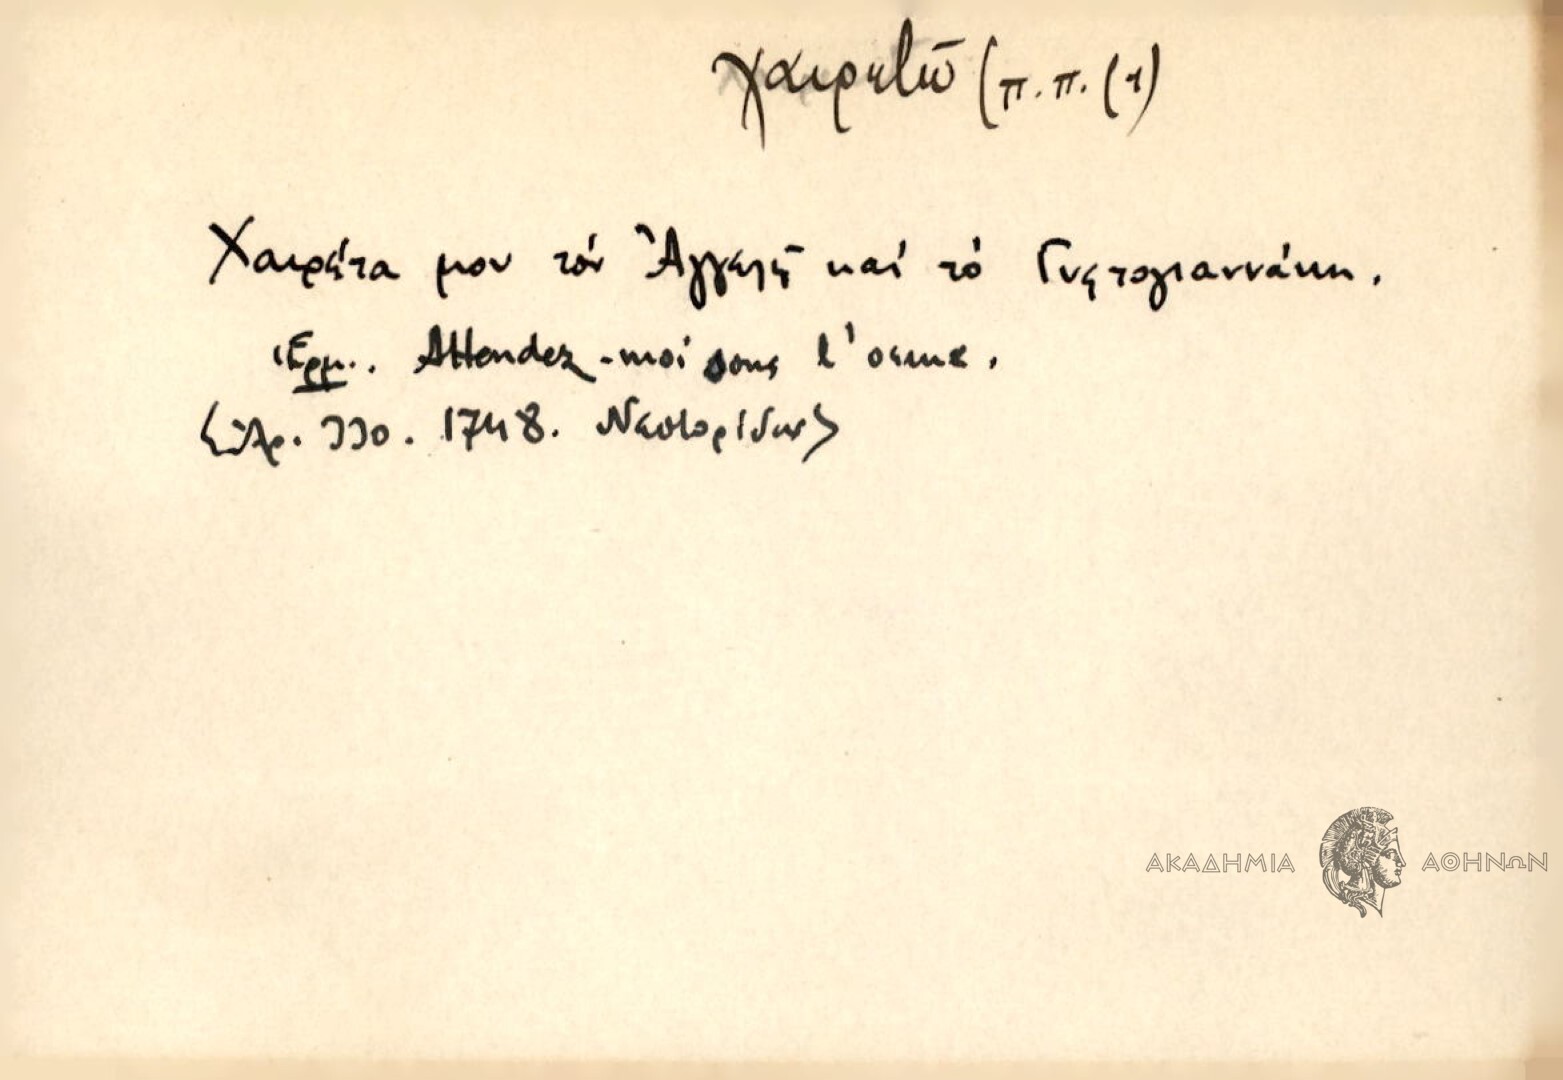 χαιρετῶ (π.π. (1)
Χαιρέτα μου τὸν Ἀγγελῆ καί τὸ Γνεστογιαννάκη.
Ἑρμ. Attendez-moi sous l'orme.
Ἀρ. 330. 1748. Νεστορίδης
ΑΚΑΔΗΜΙΑ ΑΘΗΝΩΝ